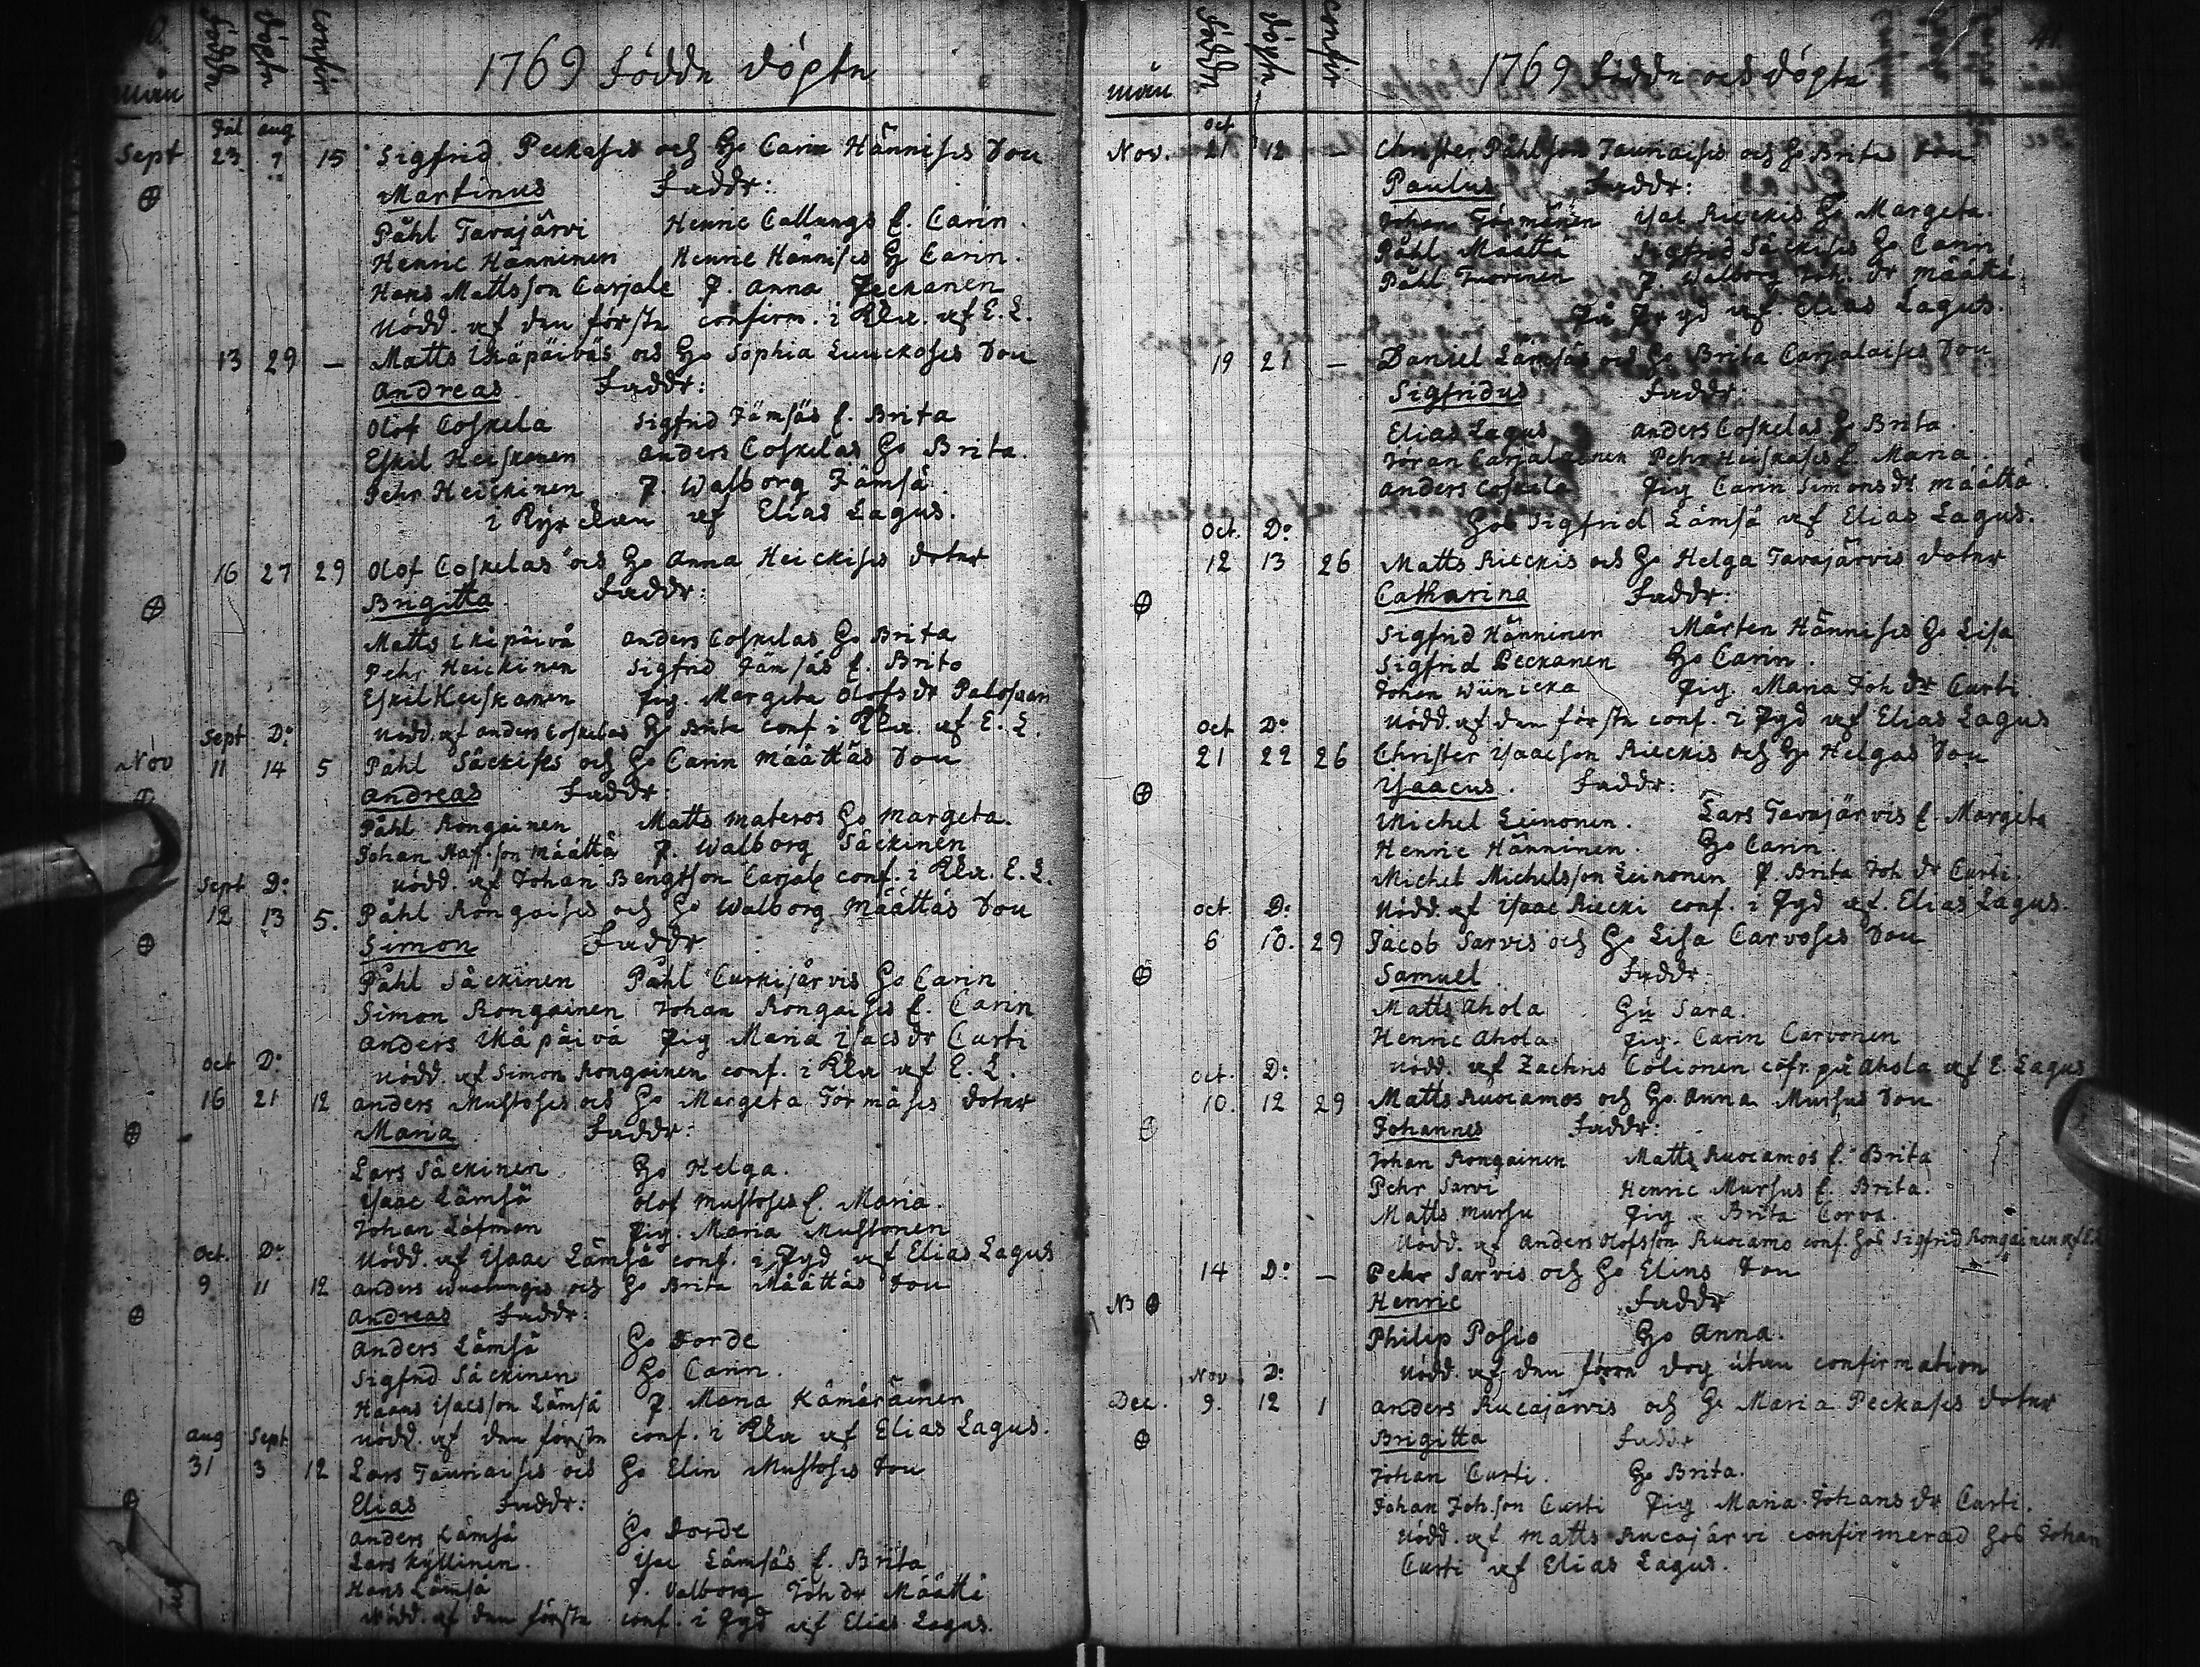 Född döpt confir
1769 Födde döpte
mån
Jul aug
Sept 23 7 15 Sigfrid Peckases och Ho Carin Hännises Son
Martinus Faddr:
Påhl Tavajärvi Henric Callungs E. Carin
Henric Hänninen Henric Hännises H Carin.
Hans Mattsson Carjale P. Anna Peckanen
Nödd. af den förste confirm. i Kla. af E. L.
13 29 – Matts Ikäpäiväs och Ho Sophia Luuckoses Son
Andreas Faddr:
Olof Coskela Sigfrid Jämsäs E. Brita
Eskil Heiskanen Anders Coskelas Ho Brita.
Pehr Heickinen P. Walborg Jämsä.
i Kyrckan af Elias Lagus.
16 27 29 Olof Coskelas och Ho Anna Heickises doter
Brigitta Faddr:
Matts Ikäpäivä Anders Coskelas Ho Brita
Pehr Heickinen Sigfrid Jämsäs E. Brita
Eskil Heiskanen Pig. Margeta Olofs dr Palosaan
Nödd. af Anders Coskelas H Brita conf i Kla. af E. L.
Sept Do
Nov 11 14 5 Påhl Säckises och Ho Carin Määttäs Son
Andreas Faddr:
Påhl Rongainen Matts Materos Ho Margeta.
Johan son Määttä P. Walborg Säckinen
Nödd. af Johan Bengtson Carjale conf. i Kla. E. L.
Sept Do
12 13 5. Påhl Rongaises och Ho Walborg Määttäs Son
Simon Faddr
Påhl Säckinen Påhl Curkijärvis Ho Carin
Simon Rongainen Johan Rongaises E. Carin
Anders Ikäpäivä Pig Maria Isacs dr Curti
Nödd. af Simon Rongainen conf. i Kla af E. L.
Oct Do
16 21 12 Anders Mustoses och Ho Margeta Törmäses doter
Maria Faddr:
Lars Säckinen Ho Helga.
Isaac Lämsä Olof Mustoses E. Maria.
Johan Lafman Pig. Maria Mustonen
Nödd. af Isaac Lämsä conf. i Pgd af Elias Lagus
Oct. Do
9 11 12 Anders och Ho Brita Määttäs Son
Andreas Faddr:
Anders Lämsä Ho Dorde
Sigfrid Säckinen Ho Carin.
Haans Isacsson Lämsä P. Maria Kämäräinen
Nödd. af den förste conf. i Kla af Elias Lagus.
Aug Sept
31 3 12 Lars Tauriaises och Ho Elin Mustoses Son
Elias Faddr:
Anders Lämsä Ho Dorde
Lars Kyllinen. Isac Lämsäs E. Brita
Hans Lämsä P. Valborg Joh dr Määttä
Nödd. af den förste conf. i Pgd af Elias Lagus.
Född döpt confir
1769 Födde och döpte 41
mån
Oct
Nov. 21 12 – Christer Påhlson Tauriaises och Ho Britas Son
Paulus Faddr:
Johan Törmänen Isac Rieckis Ho Margeta.
Påhl Määttä Sigfrid Säckises Ho Carin
Påhl Tuorinen P. Walborg Joh. dr Määttä
På Pgd af Elias Lagus.
19 21 – Daniel Lämsäs och Ho Brita Carjalaises Son
Sigfridus Faddr:
Elias Lagus Anders Coskelas Ho Brita.
Jöran Carjalainen Pehr Heiskases E. Maria
Anders Coskela Pig Carin Simons dr Määttä.
Hos Sigfrid Lämsä af Elias Lagus.
Oct. Do
12 13 26 Matts Rieckis och Ho Helga Tavajärvis doter
Catharina Faddr:
Sigfrid Hänninen Mårten Hännises Ho Lisa
Sigfrid Peckanen Ho Carin.
Johan Wiinicka Pig Maria Joh dr Curti
Nödd. af den förste conf. i Pgd af Elias Lagus
Oct Do
21 22 26 Christer Isaacson Rieckis och Ho Helgas Son
Isaacus. Faddr:
Michel Leinonen. Lars Tavajärvis E. Margeta
Henric Hänninen Ho Carin.
Michel Michelsson Leinonen P. Brita Joh dr Curti.
Nödd. af Isaac Riecki conf. i Pgd af Elias Lagus.
Oct. Do
6 10. 29 Jacob Sarvis och Ho Lisa Carvoses Son
Samuel Faddr.
Matts Ahola Hu Sara.
Henric Ahola Pig. Carin Carvonen
Nödd. af Zachris Cölionen cofr. på Ahola af E. Lagus
Oct. Do
10. 12 29 Matts Ruocamos och Ho Anna Mursus Son
Johannes Faddr:
Johan Rongainen Matts Ruocamos E. Brita
Pehr Sarvi Henric Mursus E. Brita.
Matts Mursu Pig. Brita Corva.
Nödd. af Anders Olofsson Ruocamo conf. hos Sigfrid Rongainen af E.L
14 Do – Pehr Sarvis och Ho Elins Son
NB Henric Faddr
Philip Posio Ho Anna.
Nödd. af den förra dog utan confirmation
Nov. Do
Dec. 9. 12 1 Anders Rucajärvis och Ho Maria Peckases doter
Brigitta Faddr
Johan Curti. Ho Brita.
Johan Joh.son Curti Pig Maria Johans dr Curti.
Nödd. af Matts Rucajärvi confirmerad hos Johan
Curti af Elias Lagus.